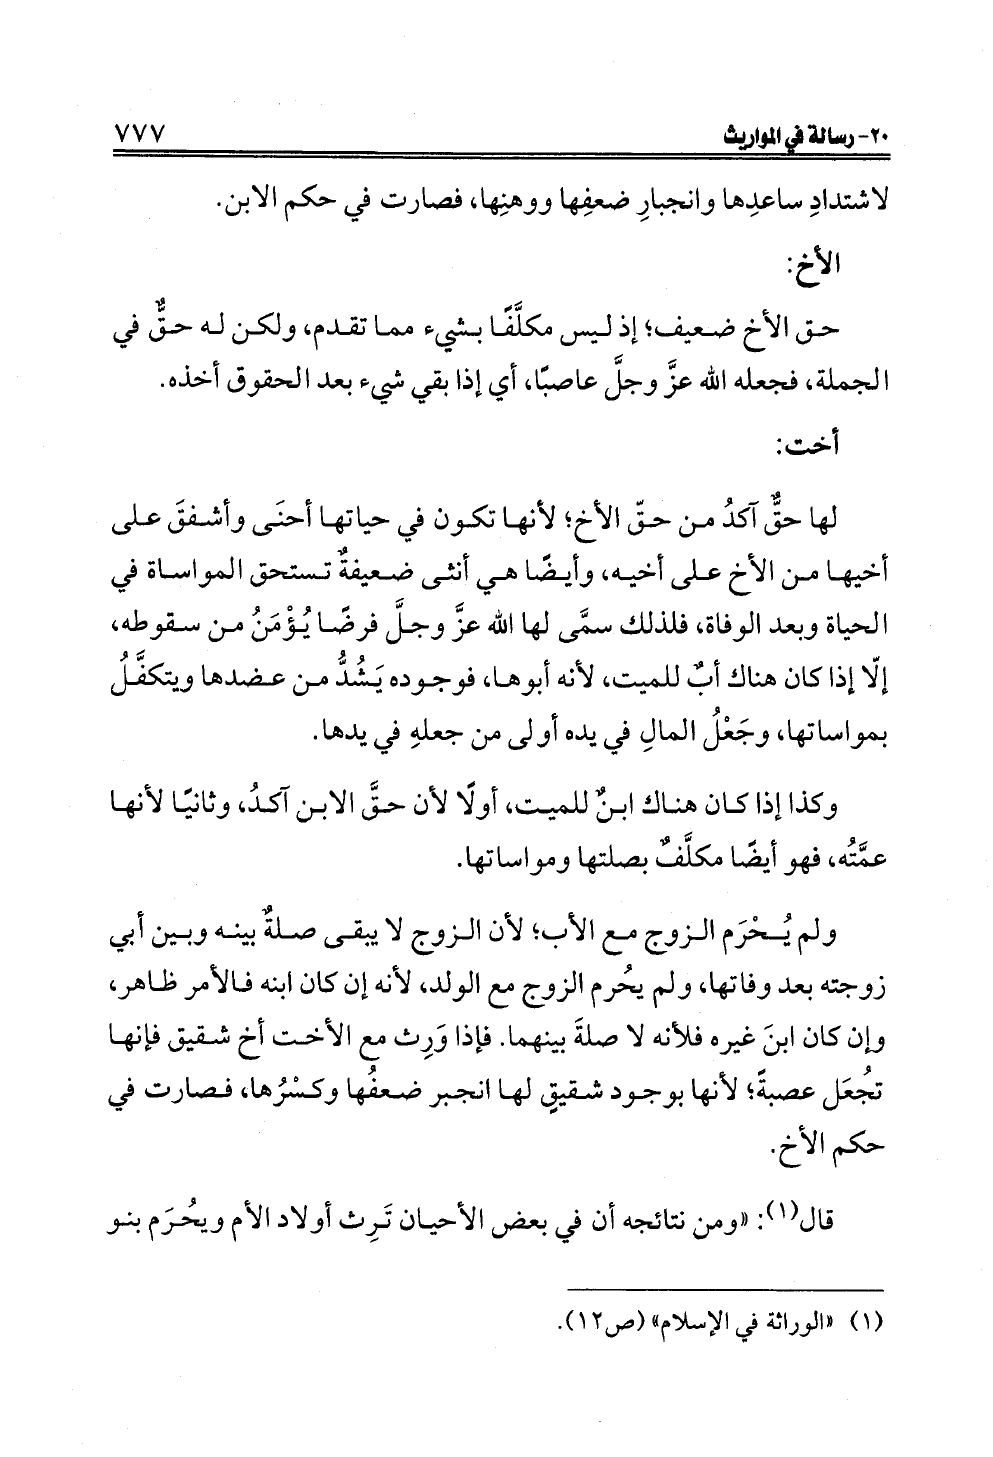 ٢٠- رسالة في المواريث ٧٧٧
لاشتدادِ ساعدِها وانجبارِ ضعفِها ووهنِها، فصارت في حكم الابن.
الأخ:
حق الأخ ضعيف؛ إذ ليس مكلَّفًا بشيء مما تقدم، ولكن له حقٌّ في
الجملة، فجعله الله عزَّ وجلَّ عاصبًا، أي إذا بقي شيء بعد الحقوق أخذه.
أخت:
لها حقٌّ آكدُ من حقّ الأخ؛ لأنها تكون في حياتها أحنَى وأشفقَ على
أخيها من الأخ على أخيه، وأيضًا هي أنثى ضعيفةٌ تستحق المواساة في
الحياة وبعد الوفاة، فلذلك سمَّى لها الله عزَّ وجلَّ فرضًا يُؤْمَنُ من سقوطه،
إلّا إذا كان هناك أبٌ للميت، لأنه أبوها، فوجوده يَشُدُّ من عضدها ويتكفَّلُ
بمواساتها، وجَعْلُ المالِ في يده أولى من جعلهِ في يدها.
وكذا إذا كان هناك ابنٌ للميت، أولًا لأن حقَّ الابن آكدُ، وثانيًا لأنها
عمَّتُه، فهو أيضًا مكلَّفٌ بصلتها ومواساتها.
ولم يُحْرَم الزوج مع الأب؛ لأن الزوج لا يبقى صلةٌ بينه وبين أبي
زوجته بعد وفاتها، ولم يحُرم الزوج مع الولد، لأنه إن كان ابنه فالأمر ظاهر،
وإن كان ابنَ غيره فلأنه لا صلةَ بينهما. فإذا وَرِث مع الأخت أخ شقيق فإنها
تجُعَل عصبةً؛ لأنها بوجود شقيقٍ لها انجبر ضعفُها وكسْرُها، فصارت في
حكم الأخ.
قال(١): «ومن نتائجه أن في بعض الأحيان تَرِث أولاد الأم ويحُرَم بنو
(١) «الوراثة في الإسلام» (ص١٢).